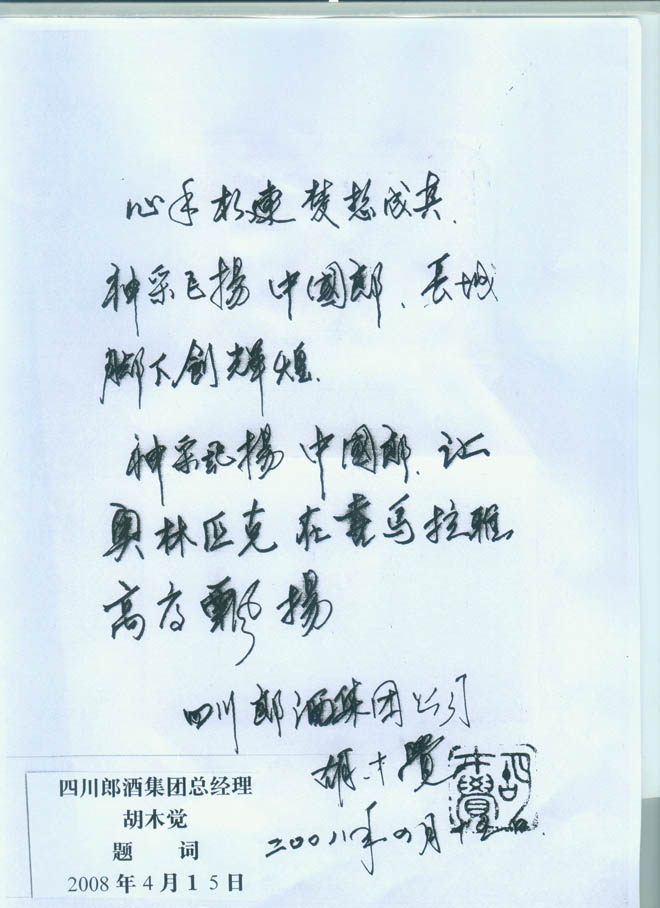 心手相连梦想成真、
神采飞揚中國郎、長城
脚下创辉煌、
神采飞揚中國郎、让
奥林匹克在喜马拉雅
高高飘揚
四川郎酒集团公司
胡木覺
二00八年四月十五日
四川郎酒集团总经理
胡木觉
题 词
2008年4月15日